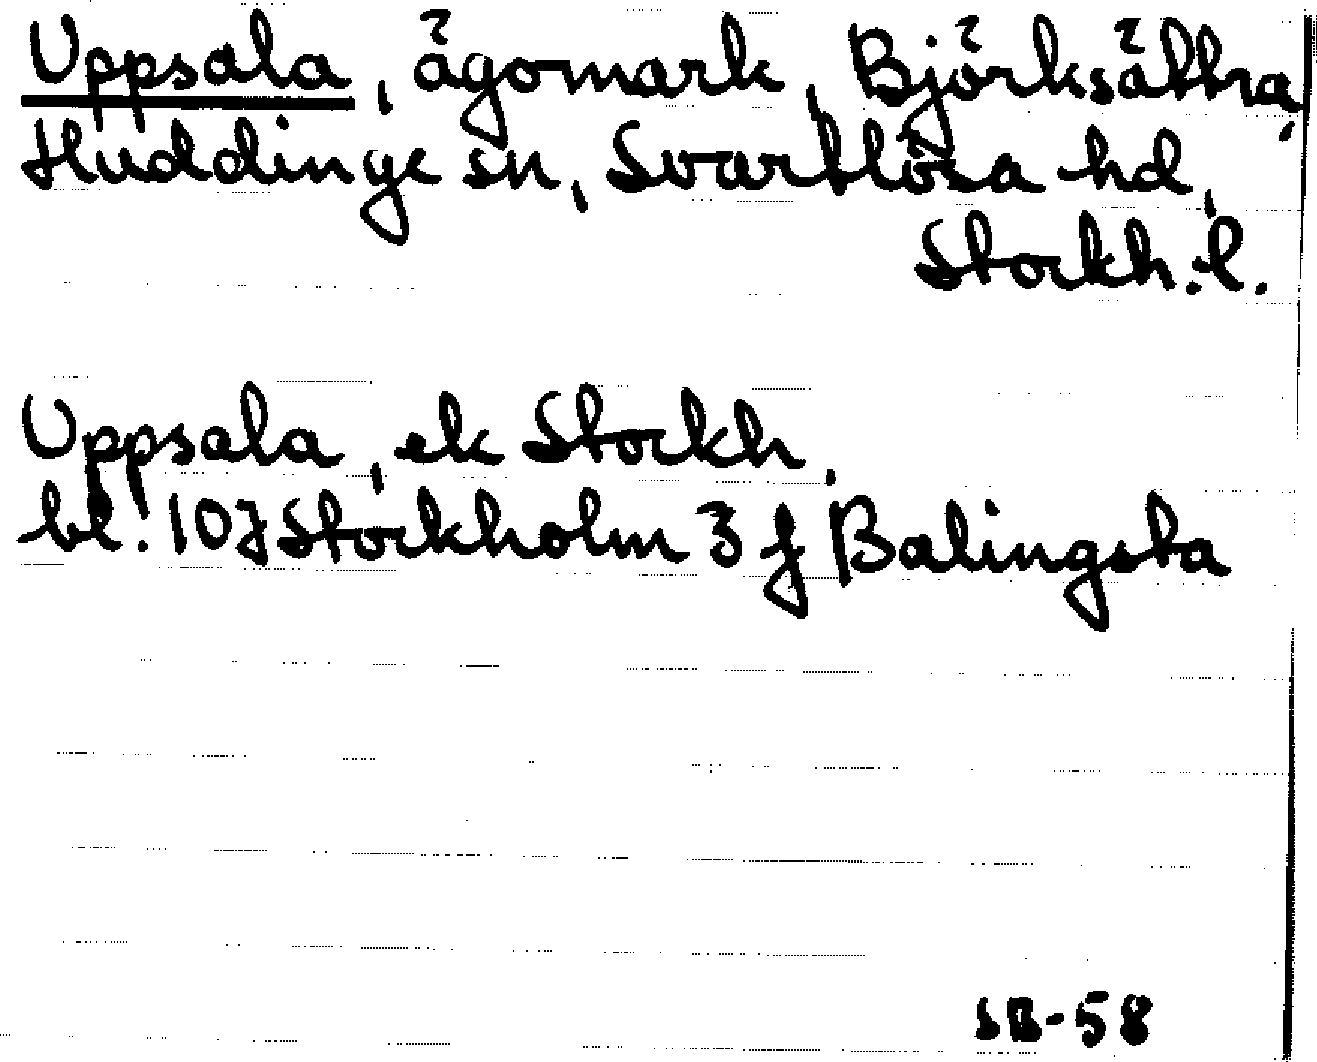 Uppsala, ägomark, Björksättra,
Huddinge sn, Svartlösa hd,
Stockh. l.
Uppsala, ek Stockh.
bl. 10J Stockholm 3 f Balingsta
SB-58